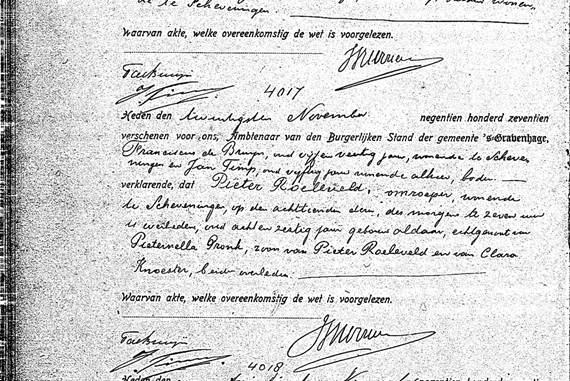 te Scheveningen.
Waarvan akte, welke overeenkomstig de wet is voorgelezen.
4017
Heden den twintigsten November negentien honderd zeventien
verschenen voor ons, Ambtenaar van den Burgerlijken Stand der gemeente 's-Gravenhage,
Franciscus de Bruyn, oud vijf en veertig jaar, wonende te Scheve
ningen en Jan Timp, oud vijftig jaar wonende alhier, boden
verklarende, dat Pieter Roeleveld, omroeper, wonende
te Scheveningen, op den achttienden dezer, des morgens te zeven uur
is overleden, oud acht en zestig jaar geboren aldaar, echtgenoot van
Pieternella Gronk, zoon van Pieter Roeleveld en van Clara
Knoester, beiden overleden.
Waarvan akte, welke overeenkomstig de wet is voorgelezen.
4018
Heden den